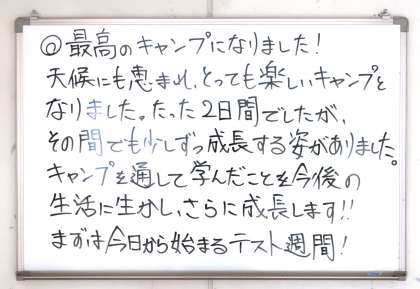 ◎最高のキャンプになりました!
天候にも恵まれ、とっても楽しいキャンプと
なりました。たった2日間でしたが、
その間でも少しずつ成長する姿がありました。
キャンプを通して学んだことを今後の
生活に生かし、さらに成長します!!
まずは今日から始まるテスト週間!